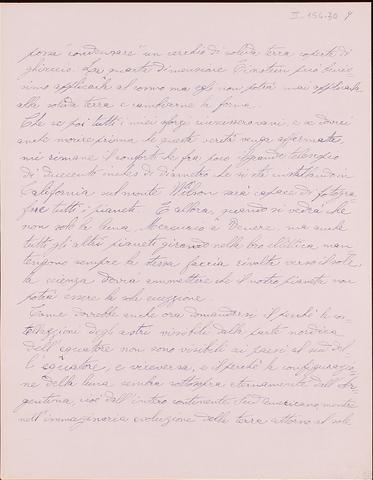 II-156.30 9
possa "condensare" un cerchio di solida terra coperta di
ghiaccio. La quarta dimensione Einstein può benis
simo applicarla al cosmo ma egli non potrà mai applicarla
alla solida terra e cambiarne la forma.
Che se poi tutti i miei sforzi riuscissero vani, e se dovrò
anche morire prima che questa verità venga affermata,
mi rimane il conforto che fra poco il grande telescopio
di duecento inches di diametro che si sta installando in
California sul monte Wilson sarà capace di fotogra
fare tutti i pianeti. E allora, quando si vedrà che
non solo la luna, Mercurio e Venere, ma anche
tutti gli altri pianeti girando nella loro ellittica man
tengono sempre la stessa faccia rivolta verso il sole,
la scienza dovrà ammettere che il nostro pianeta non
potrà essere la sola eccezione.
Come dovrebbe anche ora domandarsi il perchè le co
stellazioni degli astri visibili dalla parte nordica
dell'equatore non sono visibili ai paesi al sud del
l'equatore, e viceversa, e il perchè la configurazio
ne della luna sembra sottosopra eternamente dall'Ar
gentina, cioè dall'intero continente Sud Americano, mentre
nell'immaginaria evoluzione della terra attorno al sole